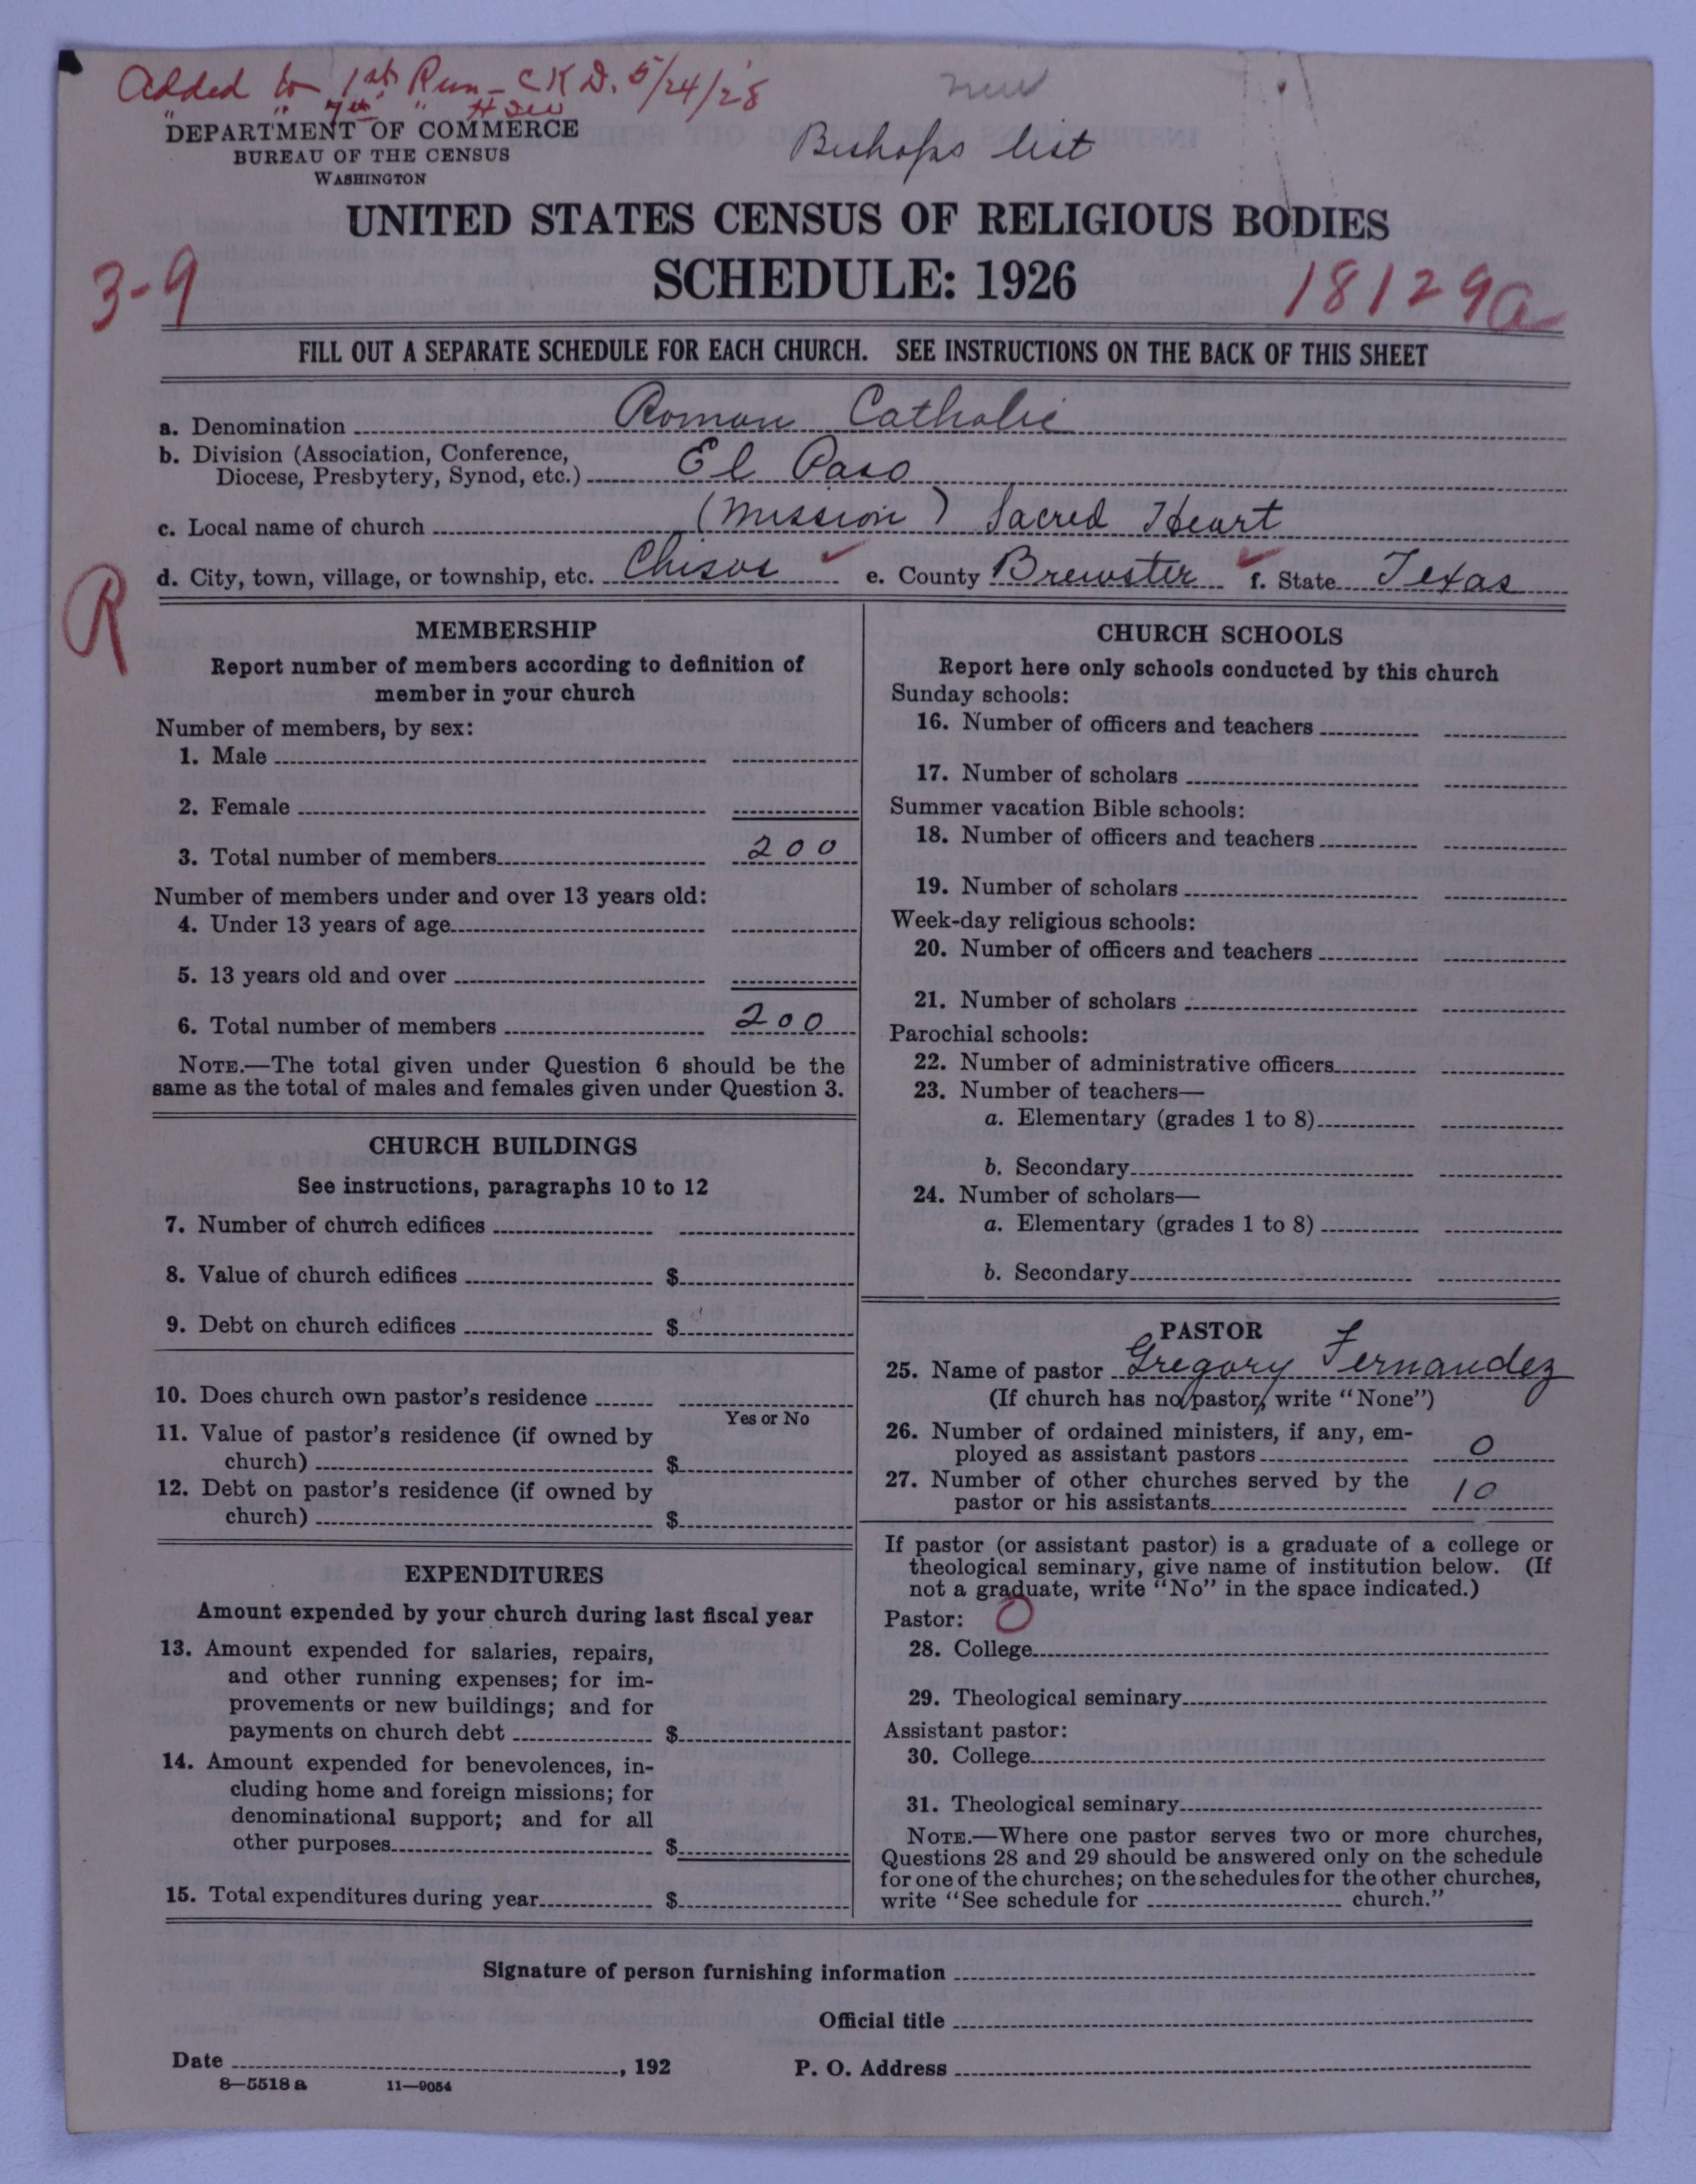 Added to 1st Run - C.K.D. 5/24/28
" " 7th " HDW
new
DEPARTMENT OF COMMERCE
BUREAU OF THE CENSUS
WASHINGTON
Bishops list
UNITED STATES CENSUS OF RELIGIOUS BODIES
SCHEDULE: 1926
3-9
18129a
FILL OUT A SEPARATE SCHEDULE FOR EACH CHURCH. SEE INSTRUCTIONS ON THE BACK OF THIS SHEET
a. Denomination Roman Catholic
b. Division (Association, Conference,
Diocese, Presbytery, Synod, etc.) El Paso
c. Local name of church (Mission) Sacred Heart
d. City, town, village, or township, etc. Chisos ✓ e. County Brewster ✓ f. State Texas
R
MEMBERSHIP
Report number of members according to definition of
member in your church
Number of members, by sex:
1. Male
2. Female
3. Total number of members 200
Number of members under and over 13 years old:
4. Under 13 years of age
5. 13 years old and over
6. Total number of members 200
NOTE.—The total given under Question 6 should be the
same as the total of males and females given under Question 3.
CHURCH BUILDINGS
See instructions, paragraphs 10 to 12
7. Number of church edifices
8. Value of church edifices $
9. Debt on church edifices $
10. Does church own pastor's residence
Yes or No
11. Value of pastor's residence (if owned by
church) $
12. Debt on pastor's residence (if owned by
church) $
EXPENDITURES
Amount expended by your church during last fiscal year
13. Amount expended for salaries, repairs,
and other running expenses; for im-
provements or new buildings; and for
payments on church debt $
14. Amount expended for benevolences, in-
cluding home and foreign missions; for
denominational support; and for all
other purposes $
15. Total expenditures during year $
CHURCH SCHOOLS
Report here only schools conducted by this church
Sunday schools:
16. Number of officers and teachers
17. Number of scholars
Summer vacation Bible schools:
18. Number of officers and teachers
19. Number of scholars
Week-day religious schools:
20. Number of officers and teachers
21. Number of scholars
Parochial schools:
22. Number of administrative officers
23. Number of teachers—
a. Elementary (grades 1 to 8)
b. Secondary
24. Number of scholars—
a. Elementary (grades 1 to 8)
b. Secondary
PASTOR
25. Name of pastor Gregory Fernandez
(If church has no pastor, write "None")
26. Number of ordained ministers, if any, em-
ployed as assistant pastors 0
27. Number of other churches served by the
pastor or his assistants 10
If pastor (or assistant pastor) is a graduate of a college or
theological seminary, give name of institution below. (If
not a graduate, write "No" in the space indicated.)
Pastor: 0
28. College
29. Theological seminary
Assistant pastor:
30. College
31. Theological seminary
NOTE.—Where one pastor serves two or more churches,
Questions 28 and 29 should be answered only on the schedule
for one of the churches; on the schedules for the other churches,
write "See schedule for church."
Signature of person furnishing information
Official title
Date , 192 P. O. Address
8—5518 a 11—9054